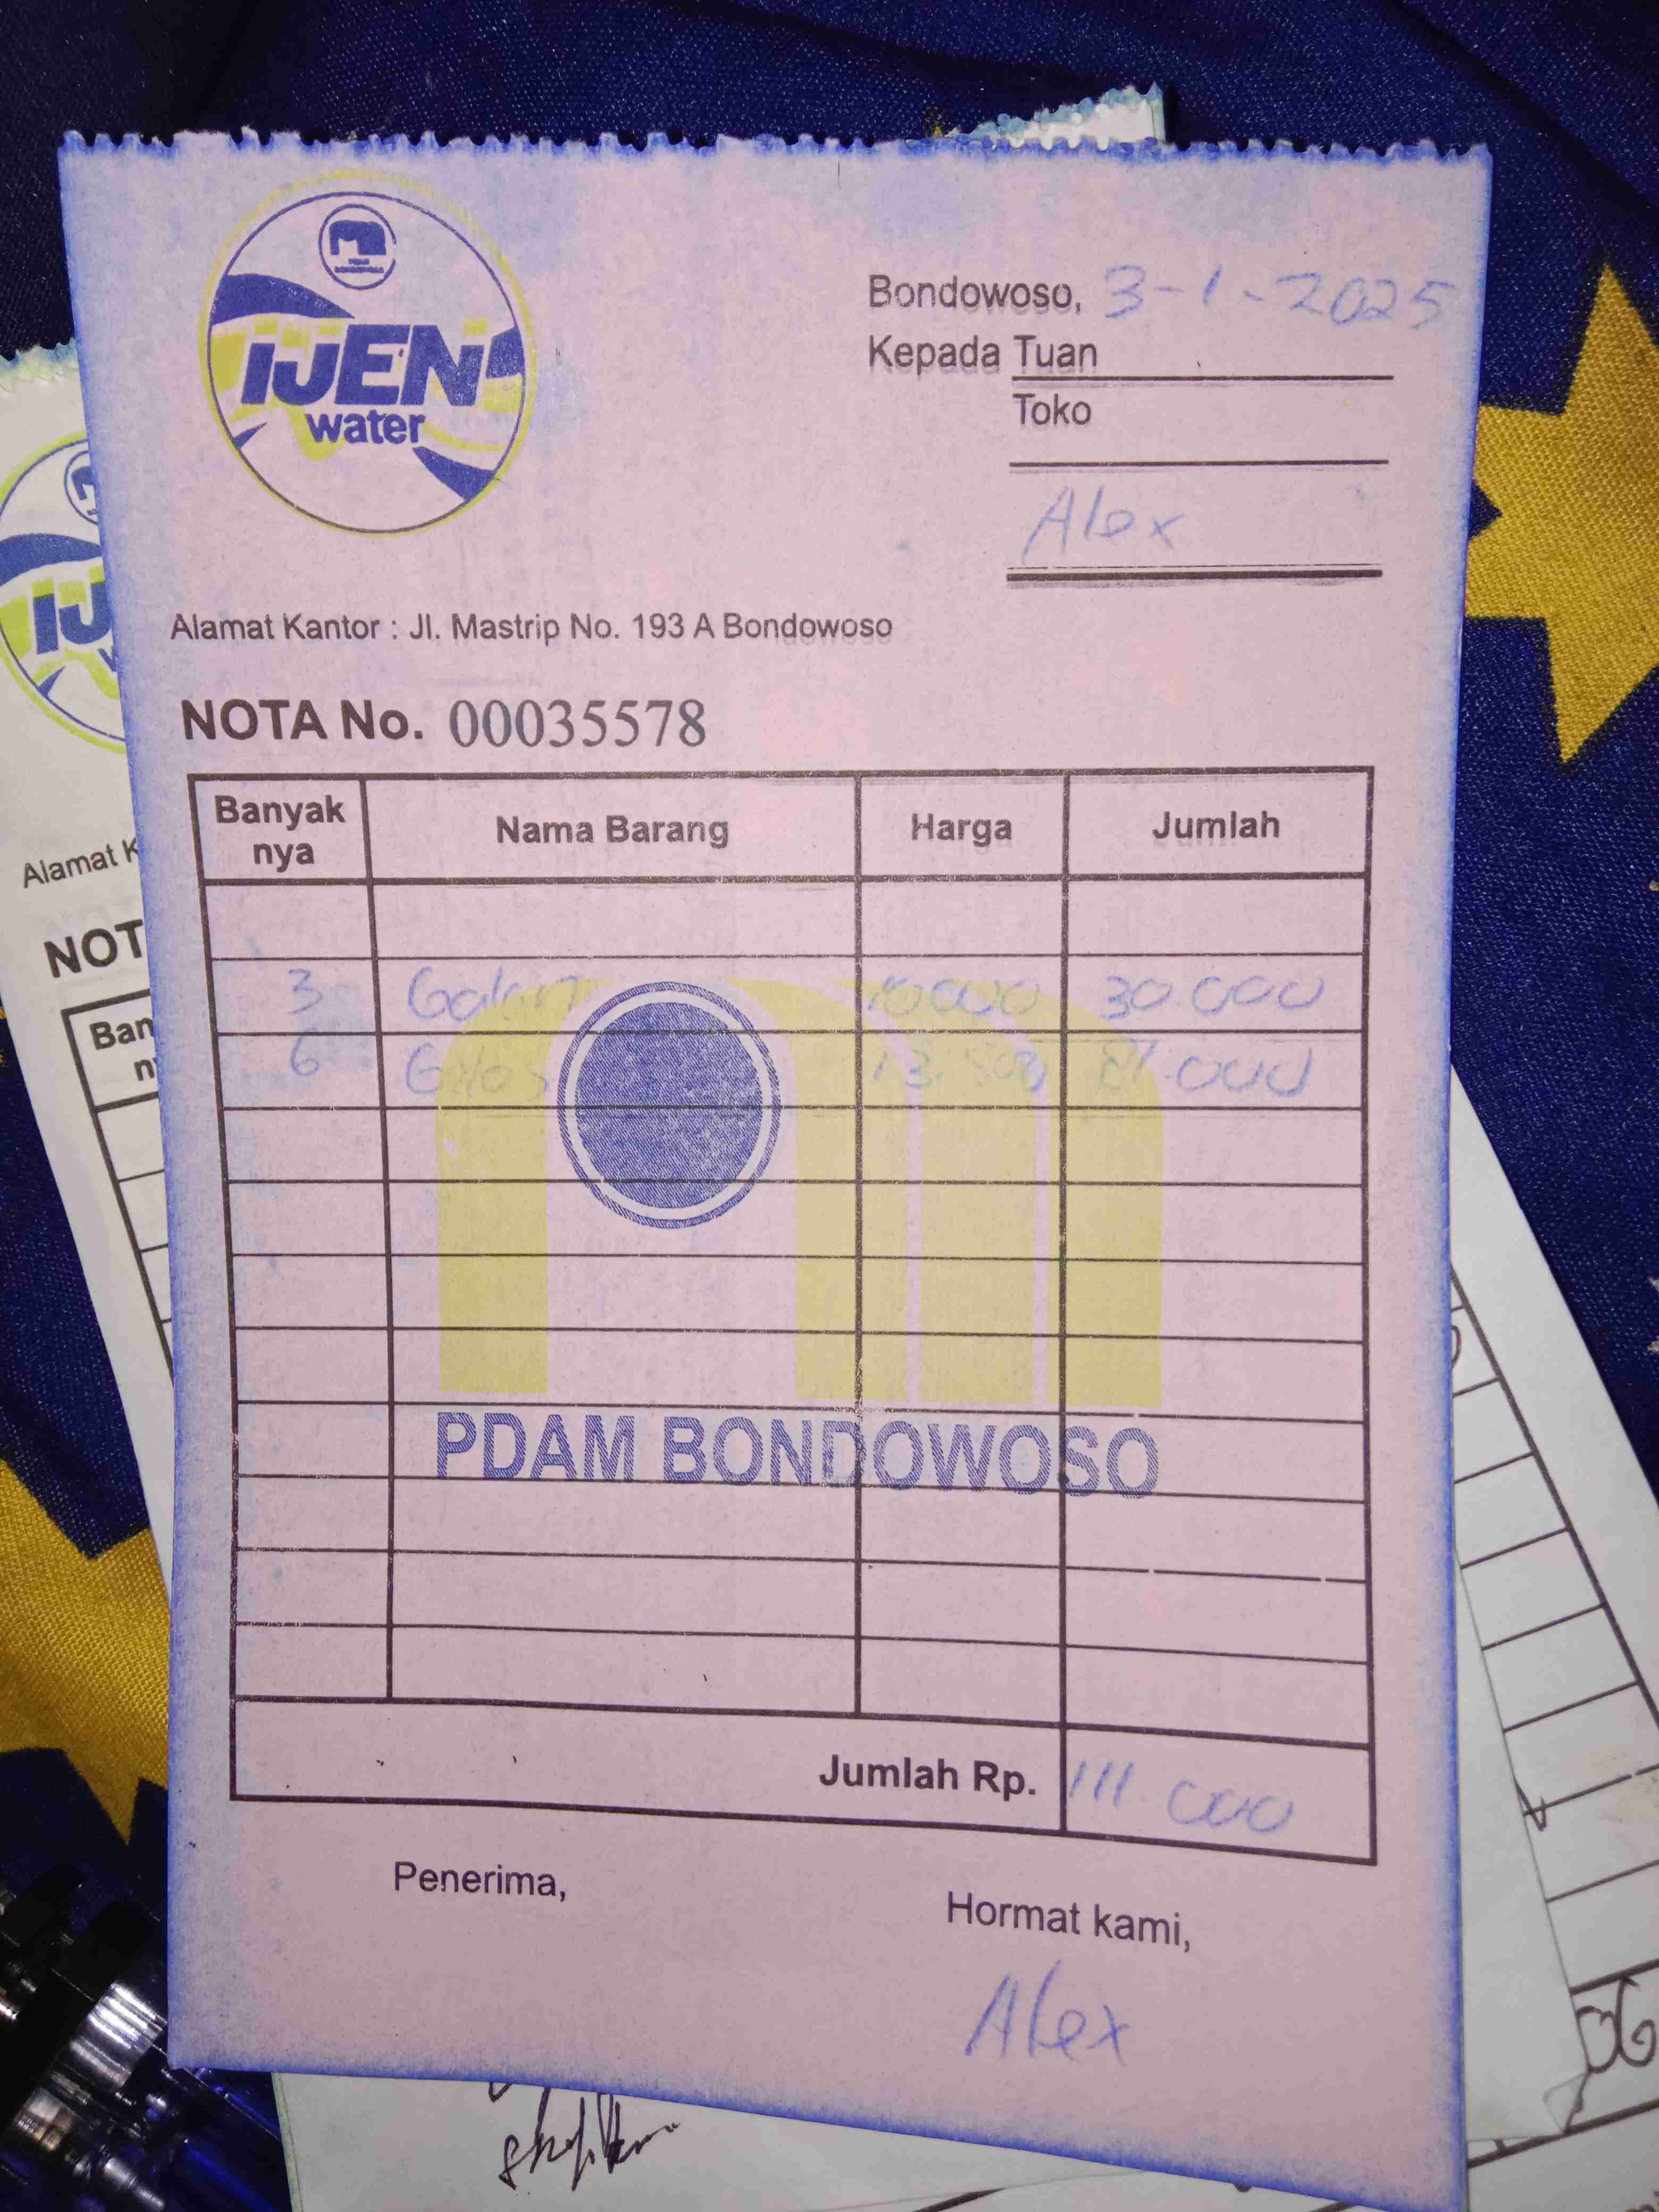 PDAM
BONDOWOSO
IJEN
water
Bondowoso, 3-1-2025
Kepada Tuan
Toko
Alex
Alamat Kantor : Jl. Mastrip No. 193 A Bondowoso
NOTA No. 00035578
Banyak nya Nama Barang Harga Jumlah
3 Galon 10.000 30.000
6 Gelas 13.500 81.000
PDAM BONDOWOSO
Jumlah Rp. 111.000
Penerima,
Hormat kami,
Alex
IJ
Alamat K
NOT
Ban